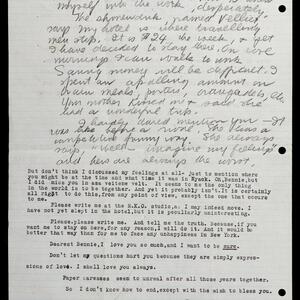 myself into the work, desperately.
The shrewd , named Nellie,
says my hotel is where travelling
men stop. It is $24. the week & yet
I have decided to stay here. In two
mornings I can walk to work
Saving money will be difficult. I
spent an appalling amount on
train meals, porters,
Your mother kissed me & said she
had a wonderful trip.
I hardly dared mention you — it
was like before a rival. She has a
competitive funny way. She always
says, "Well — imagine my feelings"
and hers are always the worst.
But don't think I discussed my feelings at all- just to mention where
you might be at the time and what time it was in N.York. Oh, Bennie, but
I did miss you in ans velvete velt. It seems to me the only thing
in the world is to be together. And yet it probably isn't. It is certainly
all right from any point of view, except the one that occurs
to me.
Please write me at the R.K.O. studio, as I may indeed move. I
have not yet slept in the hotel, but it is peculiarly uninteresting.
Please, please write me. And tell me the truth. Because, if you
want me to stay here, for any reason, I will do it. And it would be
better that way than for me to face any unhappiness in New York.
Dearest Bennie, I love you so much, and I want to be sure.
Don't let my questions hurt you because they are simply expres-
sions of love. I shall love you always.
Paper caresses seem to unreal after all those years together.
So I don't know how to end, except with the wish to bless you.